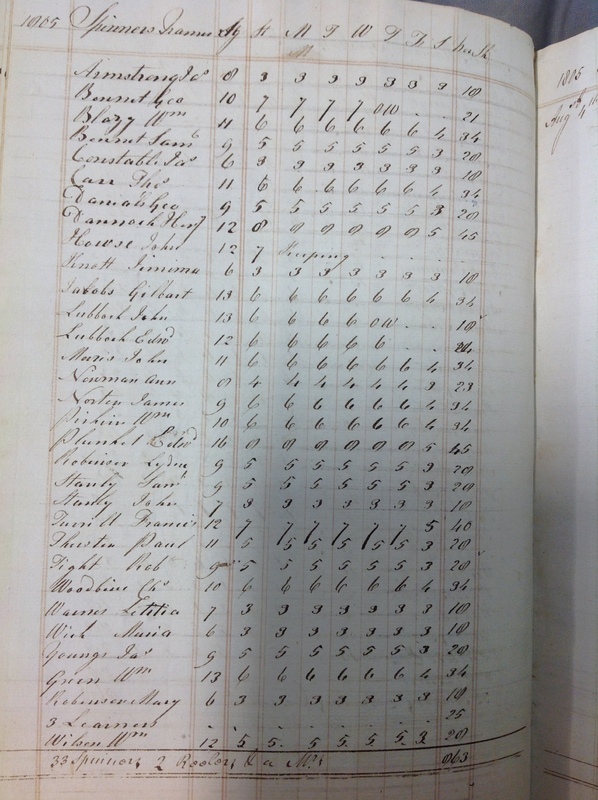 1805 Spinners Names Ag St M T W T F S No Sk
M
Armstrong Jas 8 3 3 3 3 3 3 3 18
Bennet Geo 10 7 7 7 7 OW . . 21
Blazy Wm 11 6 6 6 6 6 6 4 34
Bennet Saml 9 5 5 5 5 5 5 3 28
Constable Jas 6 3 3 3 3 3 3 3 18
Carr Thos 11 6 6 6 6 6 6 4 34
Daniels Geo 9 5 5 5 5 5 5 3 28
Dannock Hy 12 8 8 8 8 8 8 5 45
Howse John 12 7 . . . .
Knott Jimima 6 3 3 3 3 3 3 3 18
Jacobs Gilbart 13 6 6 6 6 6 6 4 34
Lubbock John 13 6 6 6 6 OW . . 18
Lubbock Edwd 12 6 6 6 6 6 . . 24
Maris John 11 6 6 6 6 6 6 4 34
Newman Ann 8 4 4 4 4 4 4 3 23
Norton James 9 6 6 6 6 6 6 4 34
Wm 10 6 6 6 6 6 6 4 34
Plunket Edwd 16 8 8 8 8 8 8 5 45
Robinson Lydia 9 5 5 5 5 5 5 3 28
Stanly Saml 9 5 5 5 5 5 5 3 28
Stanly John 7 3 3 3 3 3 3 3 18
Francis 12 7 7 7 7 7 7 5 40
Thurston Paul 11 5 5 5 5 5 5 3 28
Tight Rob 9 5 5 5 5 5 5 3 28
Woodbine Chs 10 6 6 6 6 6 6 4 34
Warnes Letitia 7 3 3 3 3 3 3 3 18
Wick Maria 6 3 3 3 3 3 3 3 18
Youngs Jas 9 5 5 5 5 5 5 3 28
Green Wm 13 6 6 6 6 6 6 4 34
Robinson Mary 6 3 3 3 3 3 3 3 18
3 Learners . . . . . . . 25
Wilson Wm 12 5 5. 5 5. 5 5. 3. 28
33 Spinners 2 Reelers & a Ms 863
1805
Aug